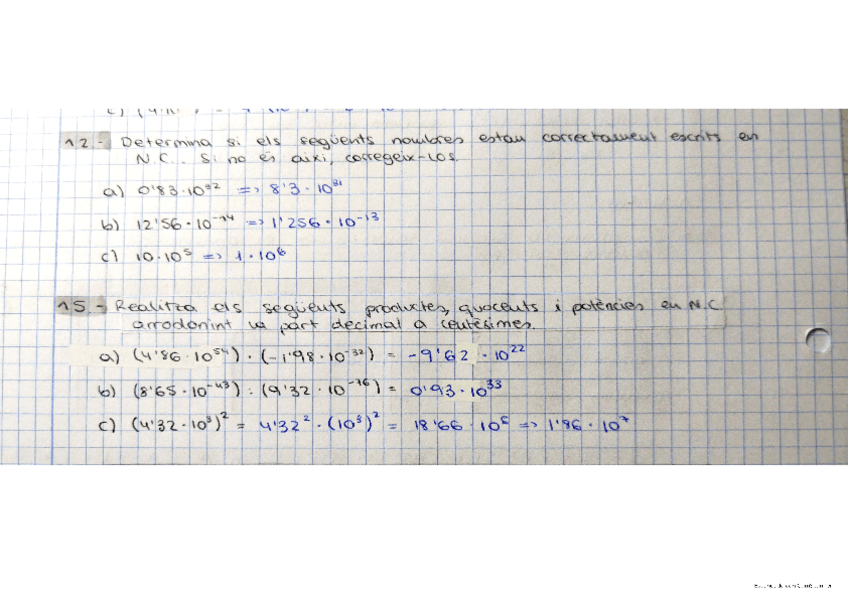 12.- Determina si els següents nombres estan correctament escrits en
N.C.. Si no és així, corregeix-los.
a) 0'83·10³² => 8'3·10³¹
b) 12'56·10⁻¹⁴ => 1'256·10⁻¹³
c) 10·10⁵ => 1·10⁶
15.- Realitza els següents productes, quocients i potències en N.C
arrodonint la part decimal a centèsimes.
a) (4'86·10⁵⁴)·(-1'98·10⁻³²) = -9'62·10²²
b) (8'65·10⁻⁴³):(9'32·10⁻⁷⁶) = 0'93·10³³
c) (4'32·10³)² = 4'32²·(10³)² = 18'66·10⁶ => 1'86·10⁷